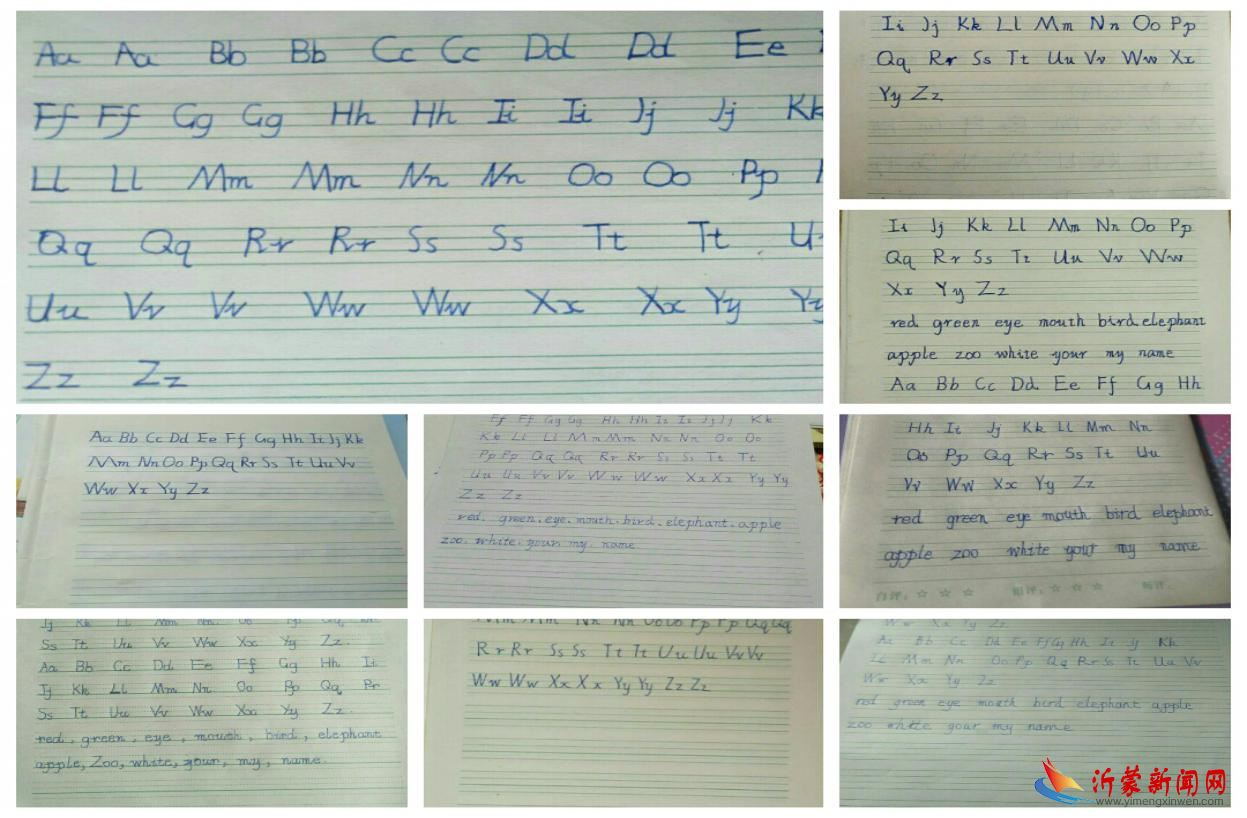 Aa Aa Bb Bb Cc Cc Dd Dd Ee
Ff Ff Gg Gg Hh Hh Ii Ii Jj Jj Kk
LL LL Mm Mm Nn Nn Oo Oo Pp
Qq Qq Rr Rr Ss Ss Tt Tt U
Uu Vv Vv Ww Ww Xx Xx Yy Yy
Zz Zz
Ii Jj Kk Ll Mm Nn Oo Pp
Qq Rr Ss Tt Uu Vv Ww Xx
Yy Zz
Ii Jj Kk Ll Mm Nn Oo Pp
Qq Rr Ss Tt Uu Vv Ww
Xx Yy Zz
red green eye mouth bird elephant
apple zoo white your my name
Aa Bb Cc Dd Ee Ff Gg Hh
Aa Bb Cc Dd Ee Ff Gg Hh Ii Jj Kk
Mm Nn Oo Pp Qq Rr Ss Tt Uu Vv
Ww Xx Yy Zz
Ff Ff Gg Gg Hh Hh Ii Ii Jj Jj Kk
Kk Ll Ll Mm Mm Nn Nn Oo Oo
Pp Pp Qq Qq Rr Rr Ss Ss Tt Tt
Uu Uu Vv Vv Ww Ww Xx Xx Yy Yy
Zz Zz
red. green. eye. mouth. bird. elephant. apple
zoo. white. your my. name
Hh Ii Jj Kk Ll Mm Nn
Oo Pp Qq Rr Ss Tt Uu
Vv Ww Xx Yy Zz
red green eye mouth bird elephant
apple zoo white your my name
自评：☆ ☆ ☆ 组评：☆ ☆ ☆ 师评：
Jj Kk Ll Mm Nn Oo Pp Qq Rr
Ss Tt Uu Vv Ww Xx Yy Zz.
Aa Bb Cc Dd Ee Ff Gg Hh Ii
Jj Kk Ll Mm Nn Oo Pp Qq Rr
Ss Tt Uu Vv Ww Xx Yy Zz.
red, green, eye, mouth, bird, elephant
apple, Zoo, white, your, my, name.
Mm Mm Nn Nn Oo Oo Pp Pp Qq Qq
Rr Rr Ss Ss Tt Tt Uu Uu Vv Vv
Ww Ww Xx Xx Yy Yy Zz Zz
Ww Xx Yy Zz
Aa Bb Cc Dd Ee Ff Gg Hh Ii Jj Kk
LL Mm Nn Oo Pp Qq Rr Ss Tt Uu Vv
Ww Xx Yy Zz
red green eye mouth bird elephant apple
zoo white your my name
沂蒙新闻网
www.yimengxinwen.com